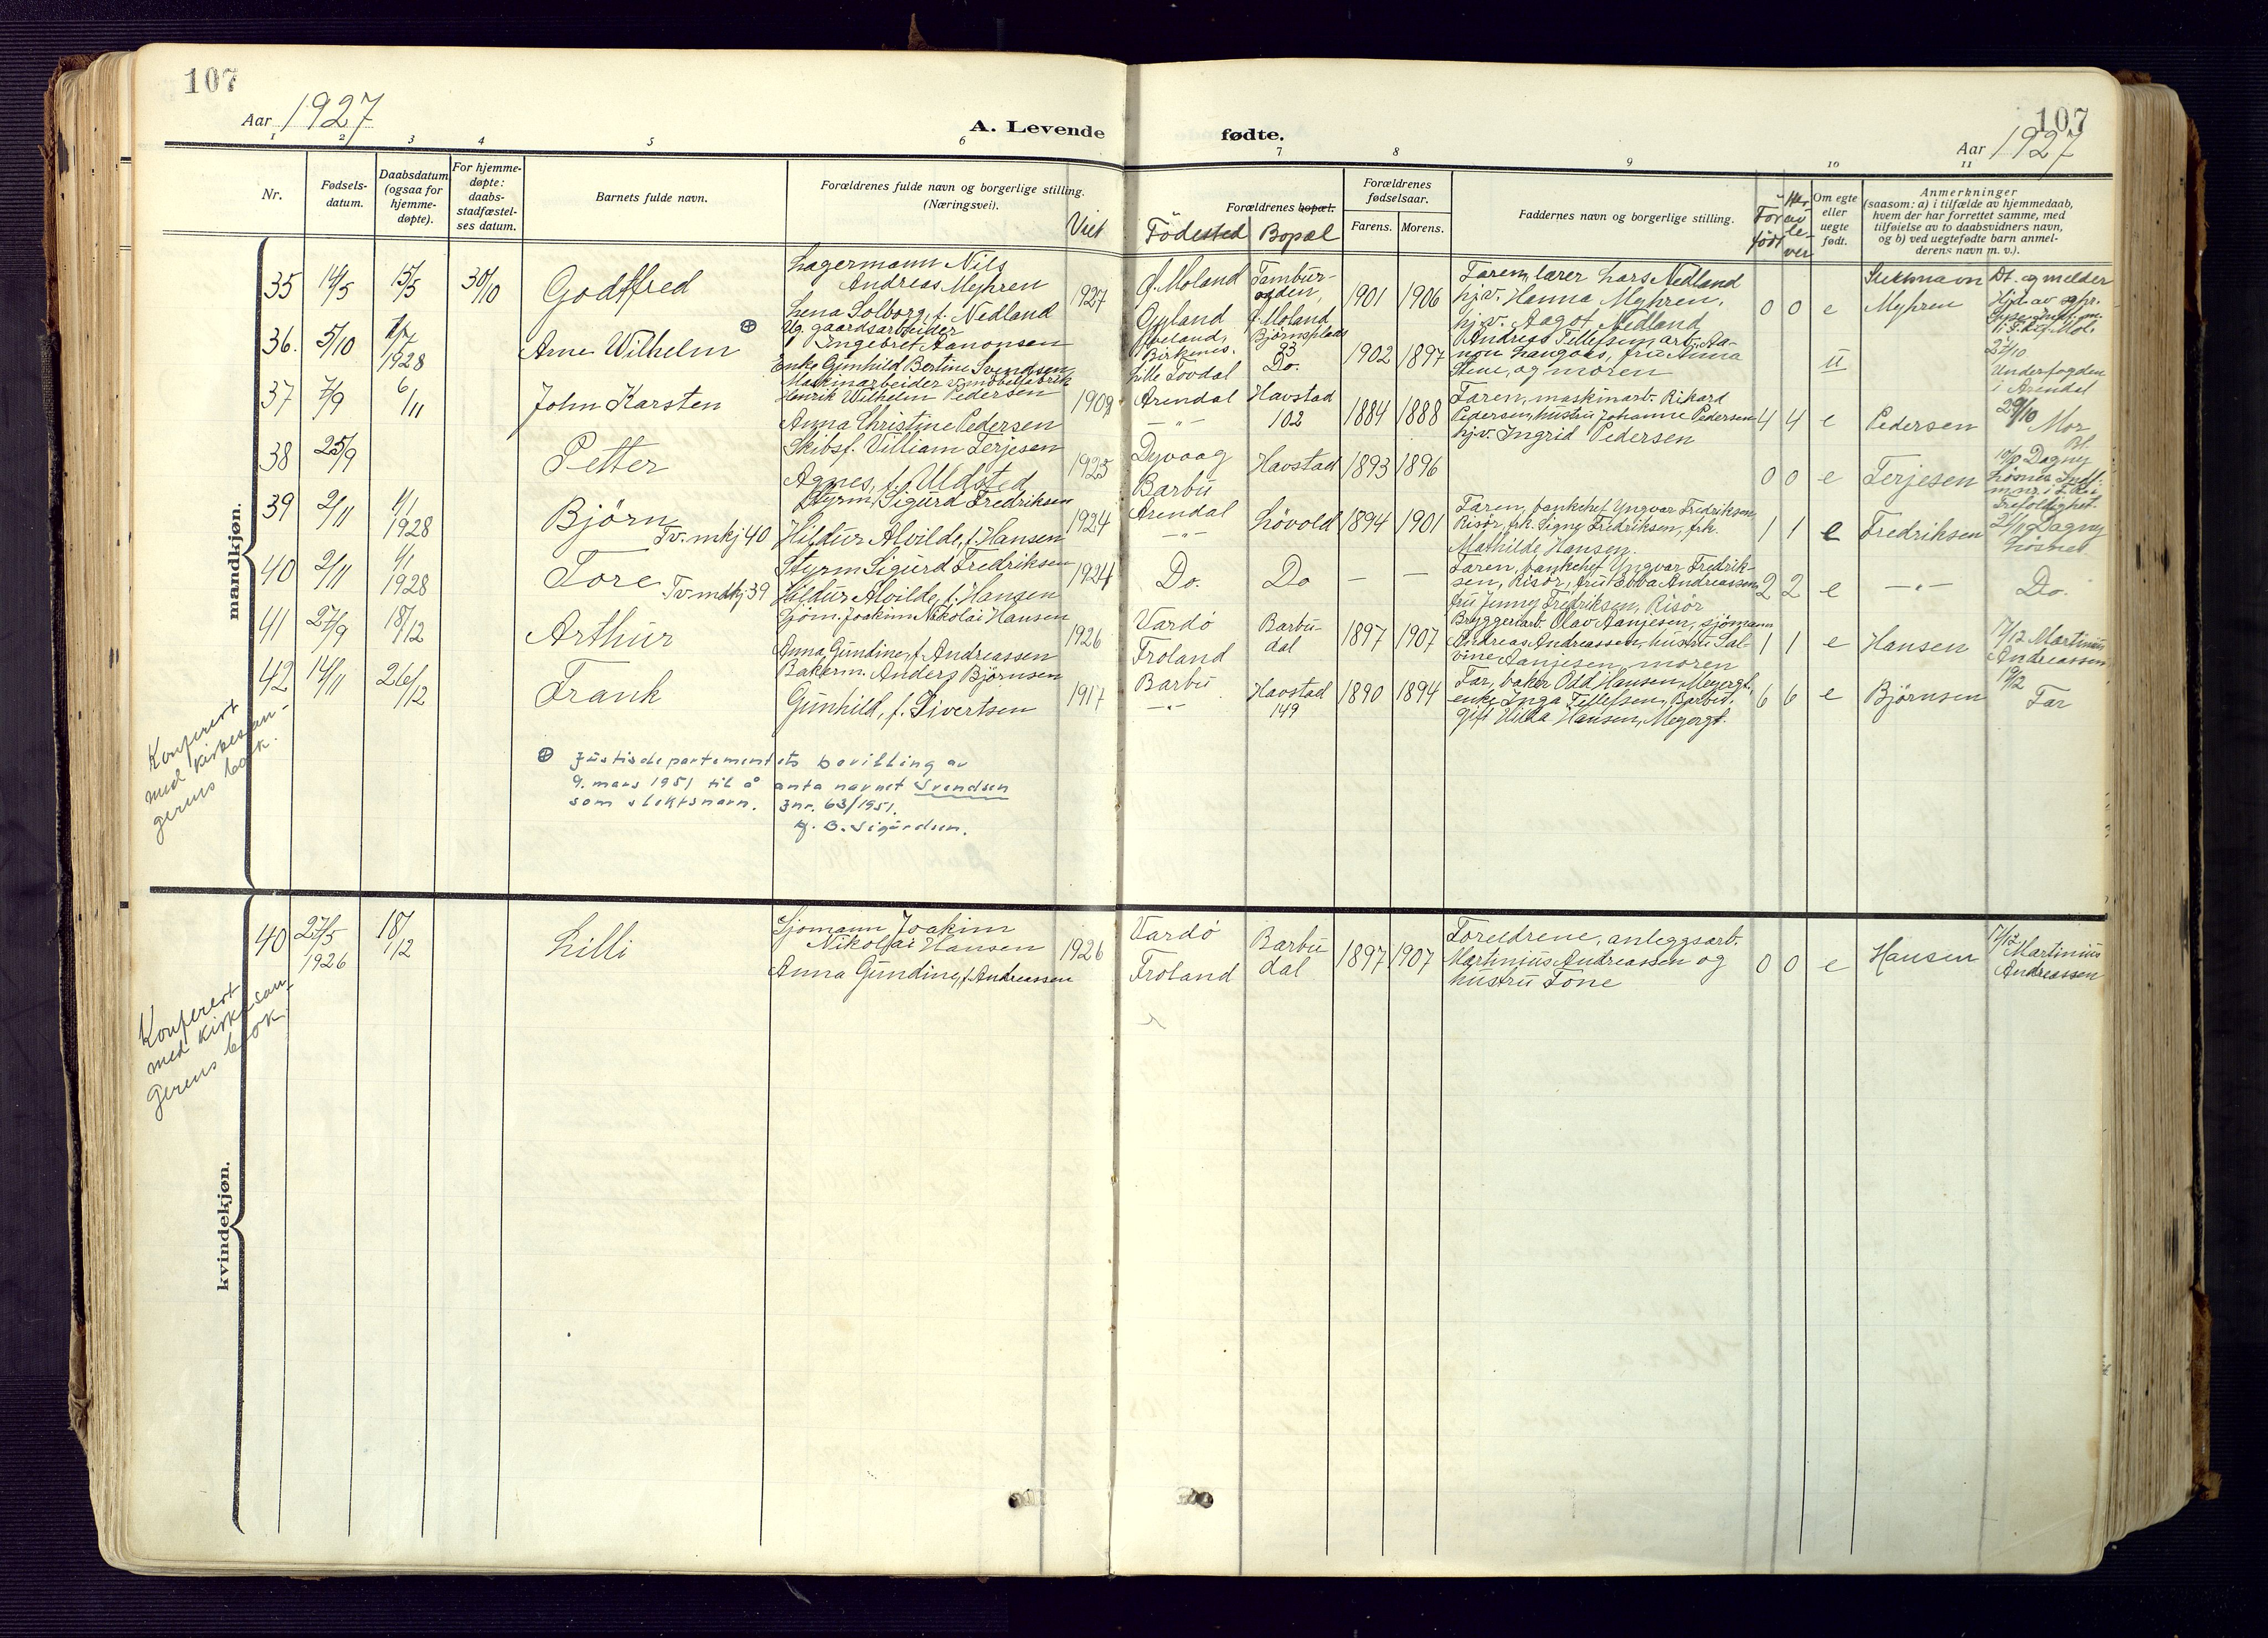 107
Aar 1927
A. Levende fødte.
107
Aar 1927
1 2 3 4 5 6 7 8 9 10 11
Nr.
Fødsels-
datum.
Daabsdatum
(ogsaa for
hjemme-
døpte).
For hjemme-
døpte:
daabs-
stadfæstel-
ses datum.
Barnets fulde navn.
Forældrenes fulde navn og borgerlige stilling.
(Næringsvei).
Viet
Forældrenes bopæl.
Födested Bopæl
Forældrenes
fødselsaar.
Farens. Morens.
Faddernes navn og borgerlige stilling.
Før
født
Om egte
eller
uegte
født.
Anmerkninger
(saasom: a) i tilfælde av hjemmedaab,
hvem der har forrettet samme, med
tilføielse av to daabsvidners navn,
og b) ved uegtefødte barn anmel-
derens navn m. v.).
mandkjøn.
35 14/5 15/5 30/10 Godtfred
Lagermann Nils
Andreas Myhren
Lena Solborg, f. Nedland
1927
Ø. Moland
Gyland
Tambur-
ogden,
Ø. Moland
1901 1906
Faren, lærer Lars Nedland
hjv. Hanna Myhren,
hjv. Aagot Nedland
0 0 e
Slektsnavn
Myhren
36. 5/10 1/4 1928 Arne Wilhelm ⊕
Ug. gaardsarbeider
Ingebret Aanonsen
Enke Gunhild Bertine Svendsen
Iveland,
Birkenes.
Lille Tovdal
Björnsplads
93
Do.
1902 1897
Andreas Tellefsen, arb. Aa-
non Langaas, fru Anna
Stene, og moren
u
27/10
Underfogden
i Arendal
37 7/9 6/11 John Karsten
Maskinarbeider v. møbelfabrik
Henrik Wilhelm Pedersen
Anna Christine Pedersen
1908
Arendal
-"-
Havstad
102
1884 1888
Faren, maskinarb. Rikard
Pedersen, hustru Johanne Pedersen
hjv. Ingrid Pedersen
4 4 e Pedersen
29/10
Mor
38 25/9 Petter
Skibsf. Villiam Terjesen
Agnes, f. Uldsted
1925
Dyvaag
Barbu
Havstad 1893 1896
0 0 e Terjesen
Dagny
39 2/11 1/1 1928 Björn
Tv. mkj 40
Styrm. Sigurd Fredriksen
Hildur Alvilde, f. Hansen
1924
Arendal
-"-
Lövold 1894 1901
Faren, bankchef Yngvar Fredriksen
Risör, frk. Signy Fredriksen, frk.
Mathilde Hansen.
1 1 e Fredriksen
21/11 Dagny
Lösnes
40 2/11 1/1 1928 Tore
Tv. mkj 39
Styrm Sigurd Fredriksen
Hildur Alvilde, f. Hansen
1924 Do. Do — —
Faren, bankchef Yngvar Fredrik-
sen, Risör, fru Ebba Andreassen,
fru Jenny Fredriksen, Risör
2 2 e -"- Do.
41 27/9 18/12 Arthur
Sjöm. Joakim Nikolai Hansen
Anna Gundine, f. Andreassen
1926
Vardö
Froland
Barbu-
dal
1897 1907
Bryggeriarb. Olav Aanjesen, sjömann
Andreas Andreassen, hustru Sal-
vine Aanjesen, moren
1 1 e Hansen
7/12 Martinius
Andreassen
42 14/11 26/12 Frank
Bakerm. Anders Björnsen
Gunhild, f. Sivertsen
1917
Barbu
-"-
Havstad
149
1890 1894
Far, baker Odd Hansen, Meyergt.
enke Inga Tellefsen, Barbu,
gift Vilda Hansen, Meyergt.
6 6 e Björnsen
19/12
Far
Konferert
med kirkesan-
gerens bok.
⊕ Justisdepartementets bevilling av
9. mars 1951 til å anta navnet Svendsen
som slektsnavn. Jnr. 63/1951.
B. Sigurdsen.
kvindekjøn.
40 27/5 1926 18/12 Lilli
Sjömann Joakim
Nikolai Hansen
Anna Gundine, f. Andreassen
1926
Vardö
Froland
Barbu
dal
1897 1907
Foreldrene, anleggsarb.
Martinius Andreassen og
hustru Tone
0 0 e Hansen
7/12
Martinius
Andreassen
Konferert
med kirkesan-
gerens bok